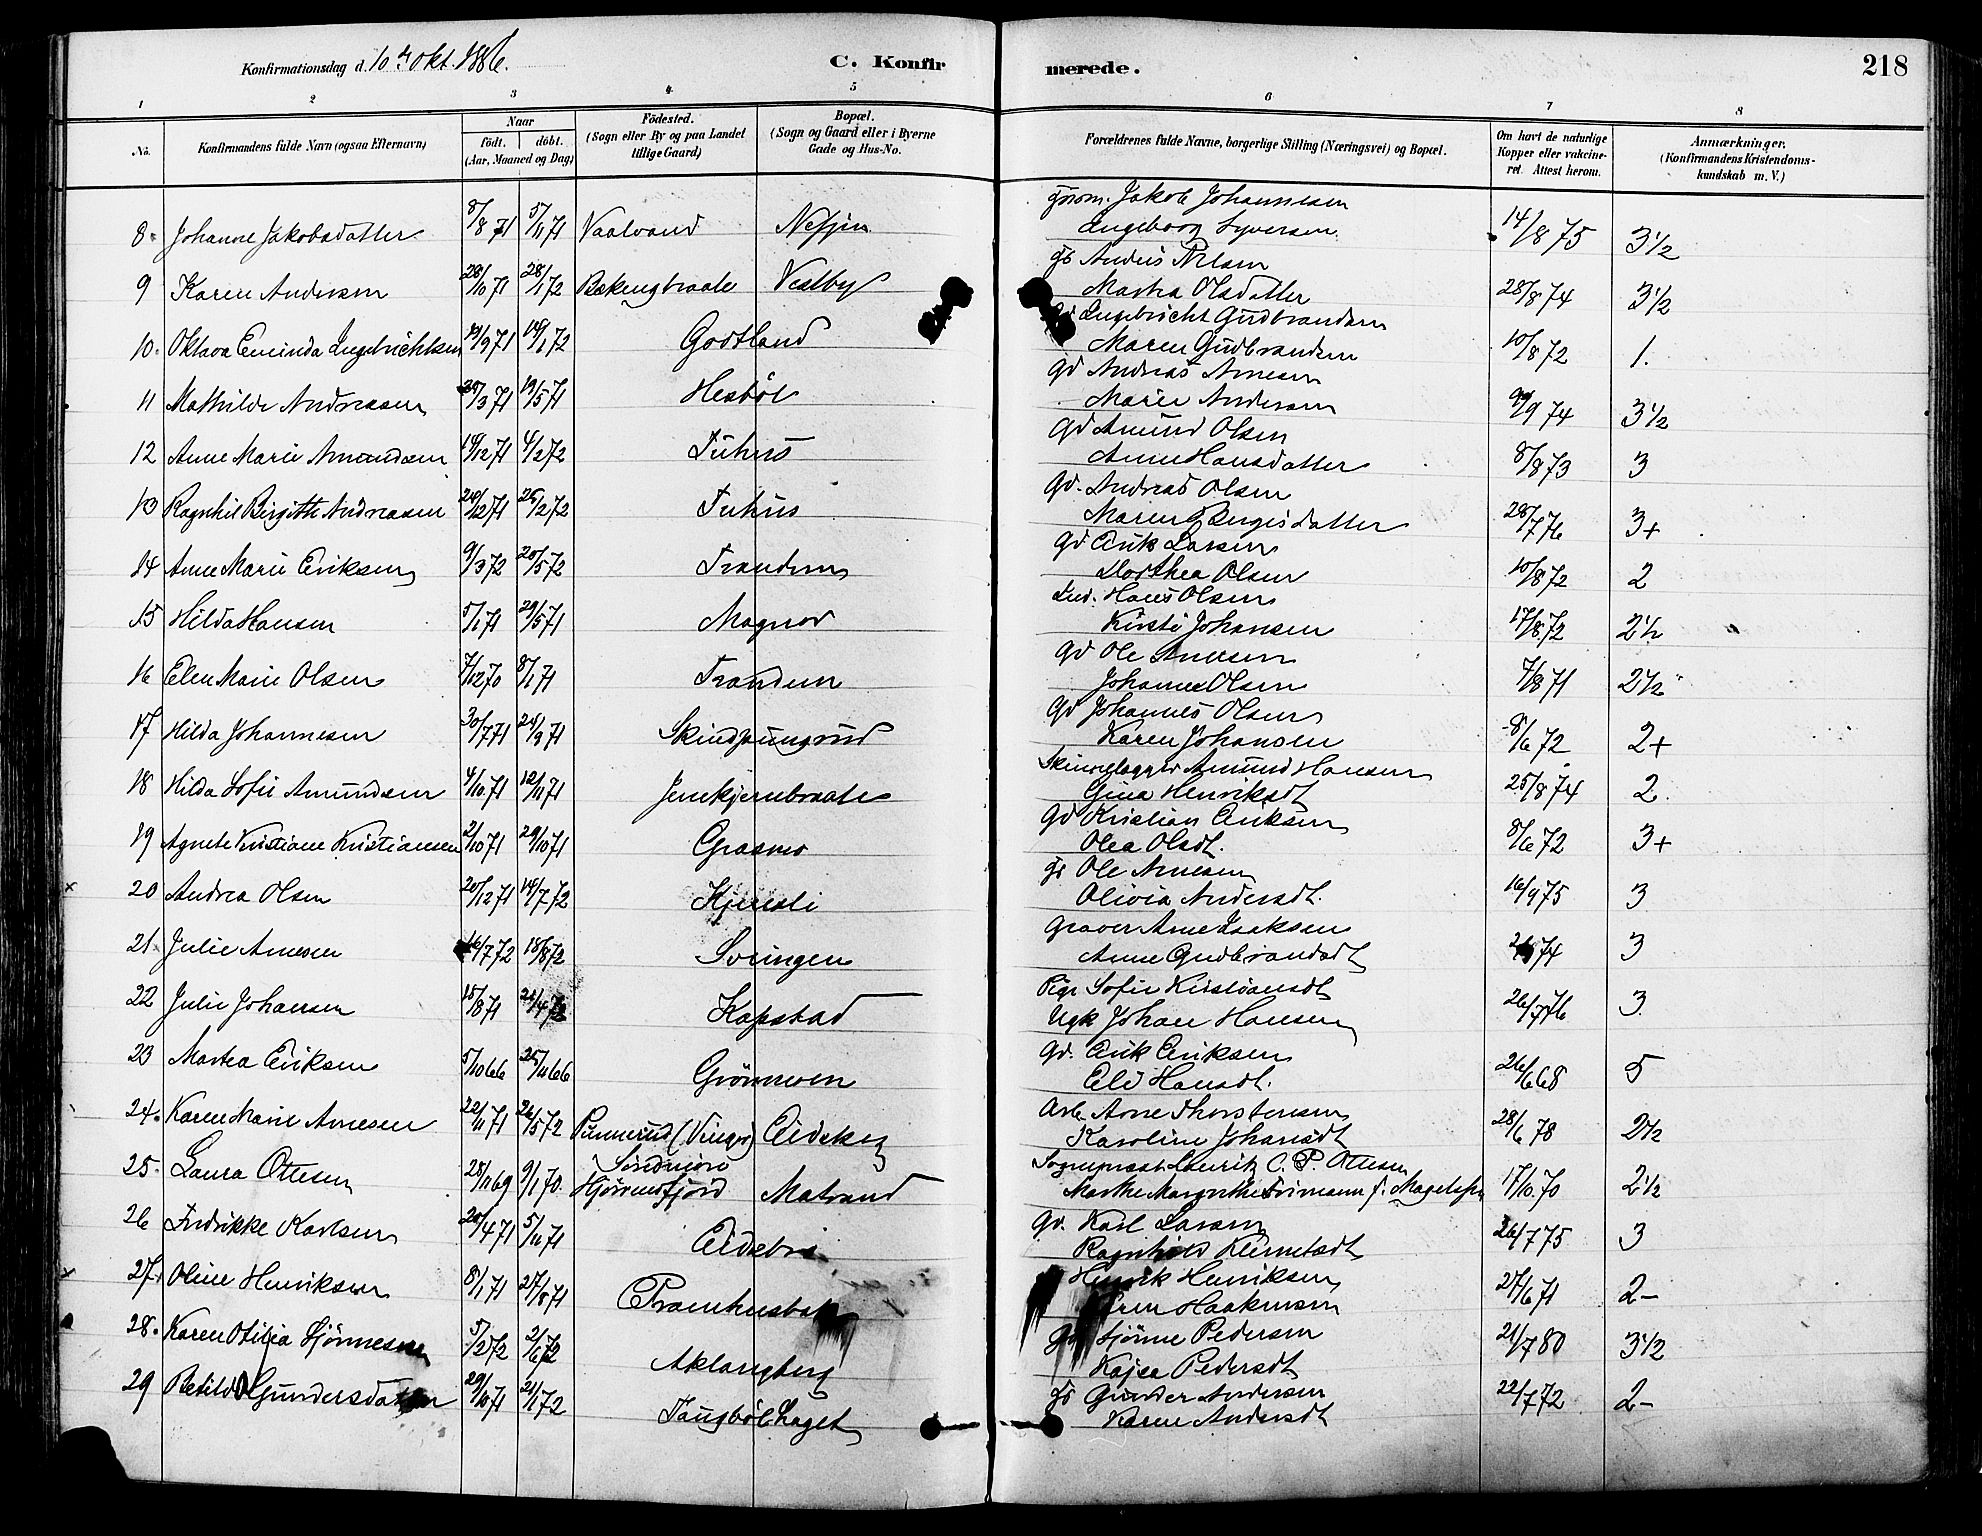 Konfirmationsdag d. 10de Okt. 1886.
C. Konfirmerede.
218
1 2 3 4 5 6 7 8
No. Konfirmandens fulde Navn (ogsaa Efternavn) Naar födt. döbt. (Aar, Maaned og Dag) Födested. (Sogn eller By og paa Landet tillige Gaard) Bopæl. (Sogn og Gaard eller i Byerne Gade og Hus-No. Forældrenes fulde Navne, borgerlige Stilling (Næringsvei) og Bopæl. Om havt de naturlige Kopper eller vakcineret. Attest herom. Anmærkninger. (Konfirmandens Kristendomskundskab m. V.)
8. Johanne Jakobsdatter 8/8 71 5/11 71 Vaalvand Jakob Johannesen Ingeborg Syversen 14/8 75 3 1/2
9 Karen Andersen 28/10 71 28/1 72 Vestby gb Anders Nilsen Martha Olsdatter 28/8 74 3 1/2
10. Oktava Eminda Ingebrichtsen 19/9 71 14/1 72 Godtland Gd Ingebricht Gudbrandsen Maren Gudbrandsen 10/8 72 1.
11 Mathilde Andreasen 20/3 71 19/5 71 Hesböl Gd Andreas Arnesen Marie Andersen 9/9 74 3 1/2
12 Anne Marie Amundsen 10/12 71 4/2 72 Tuhus Gd Amund Olsen Anne Hansdatter 8/8 73 3
13 Ragnhil Birgitte Andreasen 24/12 71 25/2 72 Tuhus Gd. Andreas Olsen Maren Bergersdatter 28/7 76 3+
14 Anne Marie Eriksen 9/3 72 20/5 72 Trandem Gd Erik Larsen Dorthea Olsen 10/8 72 2
15 Hilda Hansen 5/1 71 29/5 71 Magnor Ind. Hans Olsen Kirsti Johansen 17/8 72 2 1/2
16 Elen Marie Olsen 7/12 70 8/1 71 Trandem Gd Ole Arnesen Johanne Olsen 7/8 71 2 1/2
17 Hilda Johannesen 30/7 71 24/9 71 Skindpungrud Gd Johannes Olsen Karen Johansen 8/6 72 2+
18 Hilda Sofie Amundsen 4/10 71 12/11 71 Jenskjernbraate Amund Hansen Gina Henriksdt 25/8 74 2.
19 Agnete Kristiane Kristiansen 2/10 71 29/10 71 Grasmo Gd Kristian Eriksen Olea Olsdt. 8/6 72 3+
20 Andrea Olsen 20/12 71 14/7 72 Kjernsli gb Ole Arnesen Olivia Andersdt. 16/9 75 3
21. Julie Arnesen 16/7 72 18/8 72 Svingen Graver Arne Isaksen Anne Gudbrandsdt 74 3
22 Julie Johansen 15/8 71 21/4 72 Kapstad Pige Sofie Kristiansdt Ugk Johan Hansen 26/7 76 3
23 Martea Eriksen 5/10 66 25/11 66 Grönmoen Gd. Erik Eriksen Eli Hansdt. 26/6 68 5
24. Karen Marie Arnesen 22/11 71 26/5 72 Punnerud (Vinger) Eidskog Arb. Arne Thorstensen Karoline Johansdt 28/6 78 2 1/2
25. Laura Ottesen 28/11 69 9/1 70. Söndmöre Hjörundfjord Matrand Sogneprest Lauritz C. P. Ottesen Marthe Margrethe Frimann f. Magelssen 17/10 70 2 1/2
26 Fredrikke Karlsen 20/4 71 5/11 71 Eidsbro Gd. Karl Larsen Ragnhild Klemetsdt 26/7 75 3
27. Oline Henriksen 8/1 71 27/8 71 Pramhusbak Henrik Henriksen Haakensen 27/6 71 2-
28. Karen Otilia Stjönnesen 5/2 72 2/6 72 Aklangberg Gd Stjönne Pedersen Kajsa Pedersdt 21/7 80 3 1/2
29 Betild Gundersdatter 29/10 71 21/1 72 Taugböl Laget gb Gunder Andersen Karen Andersdt 22/7 72 2-